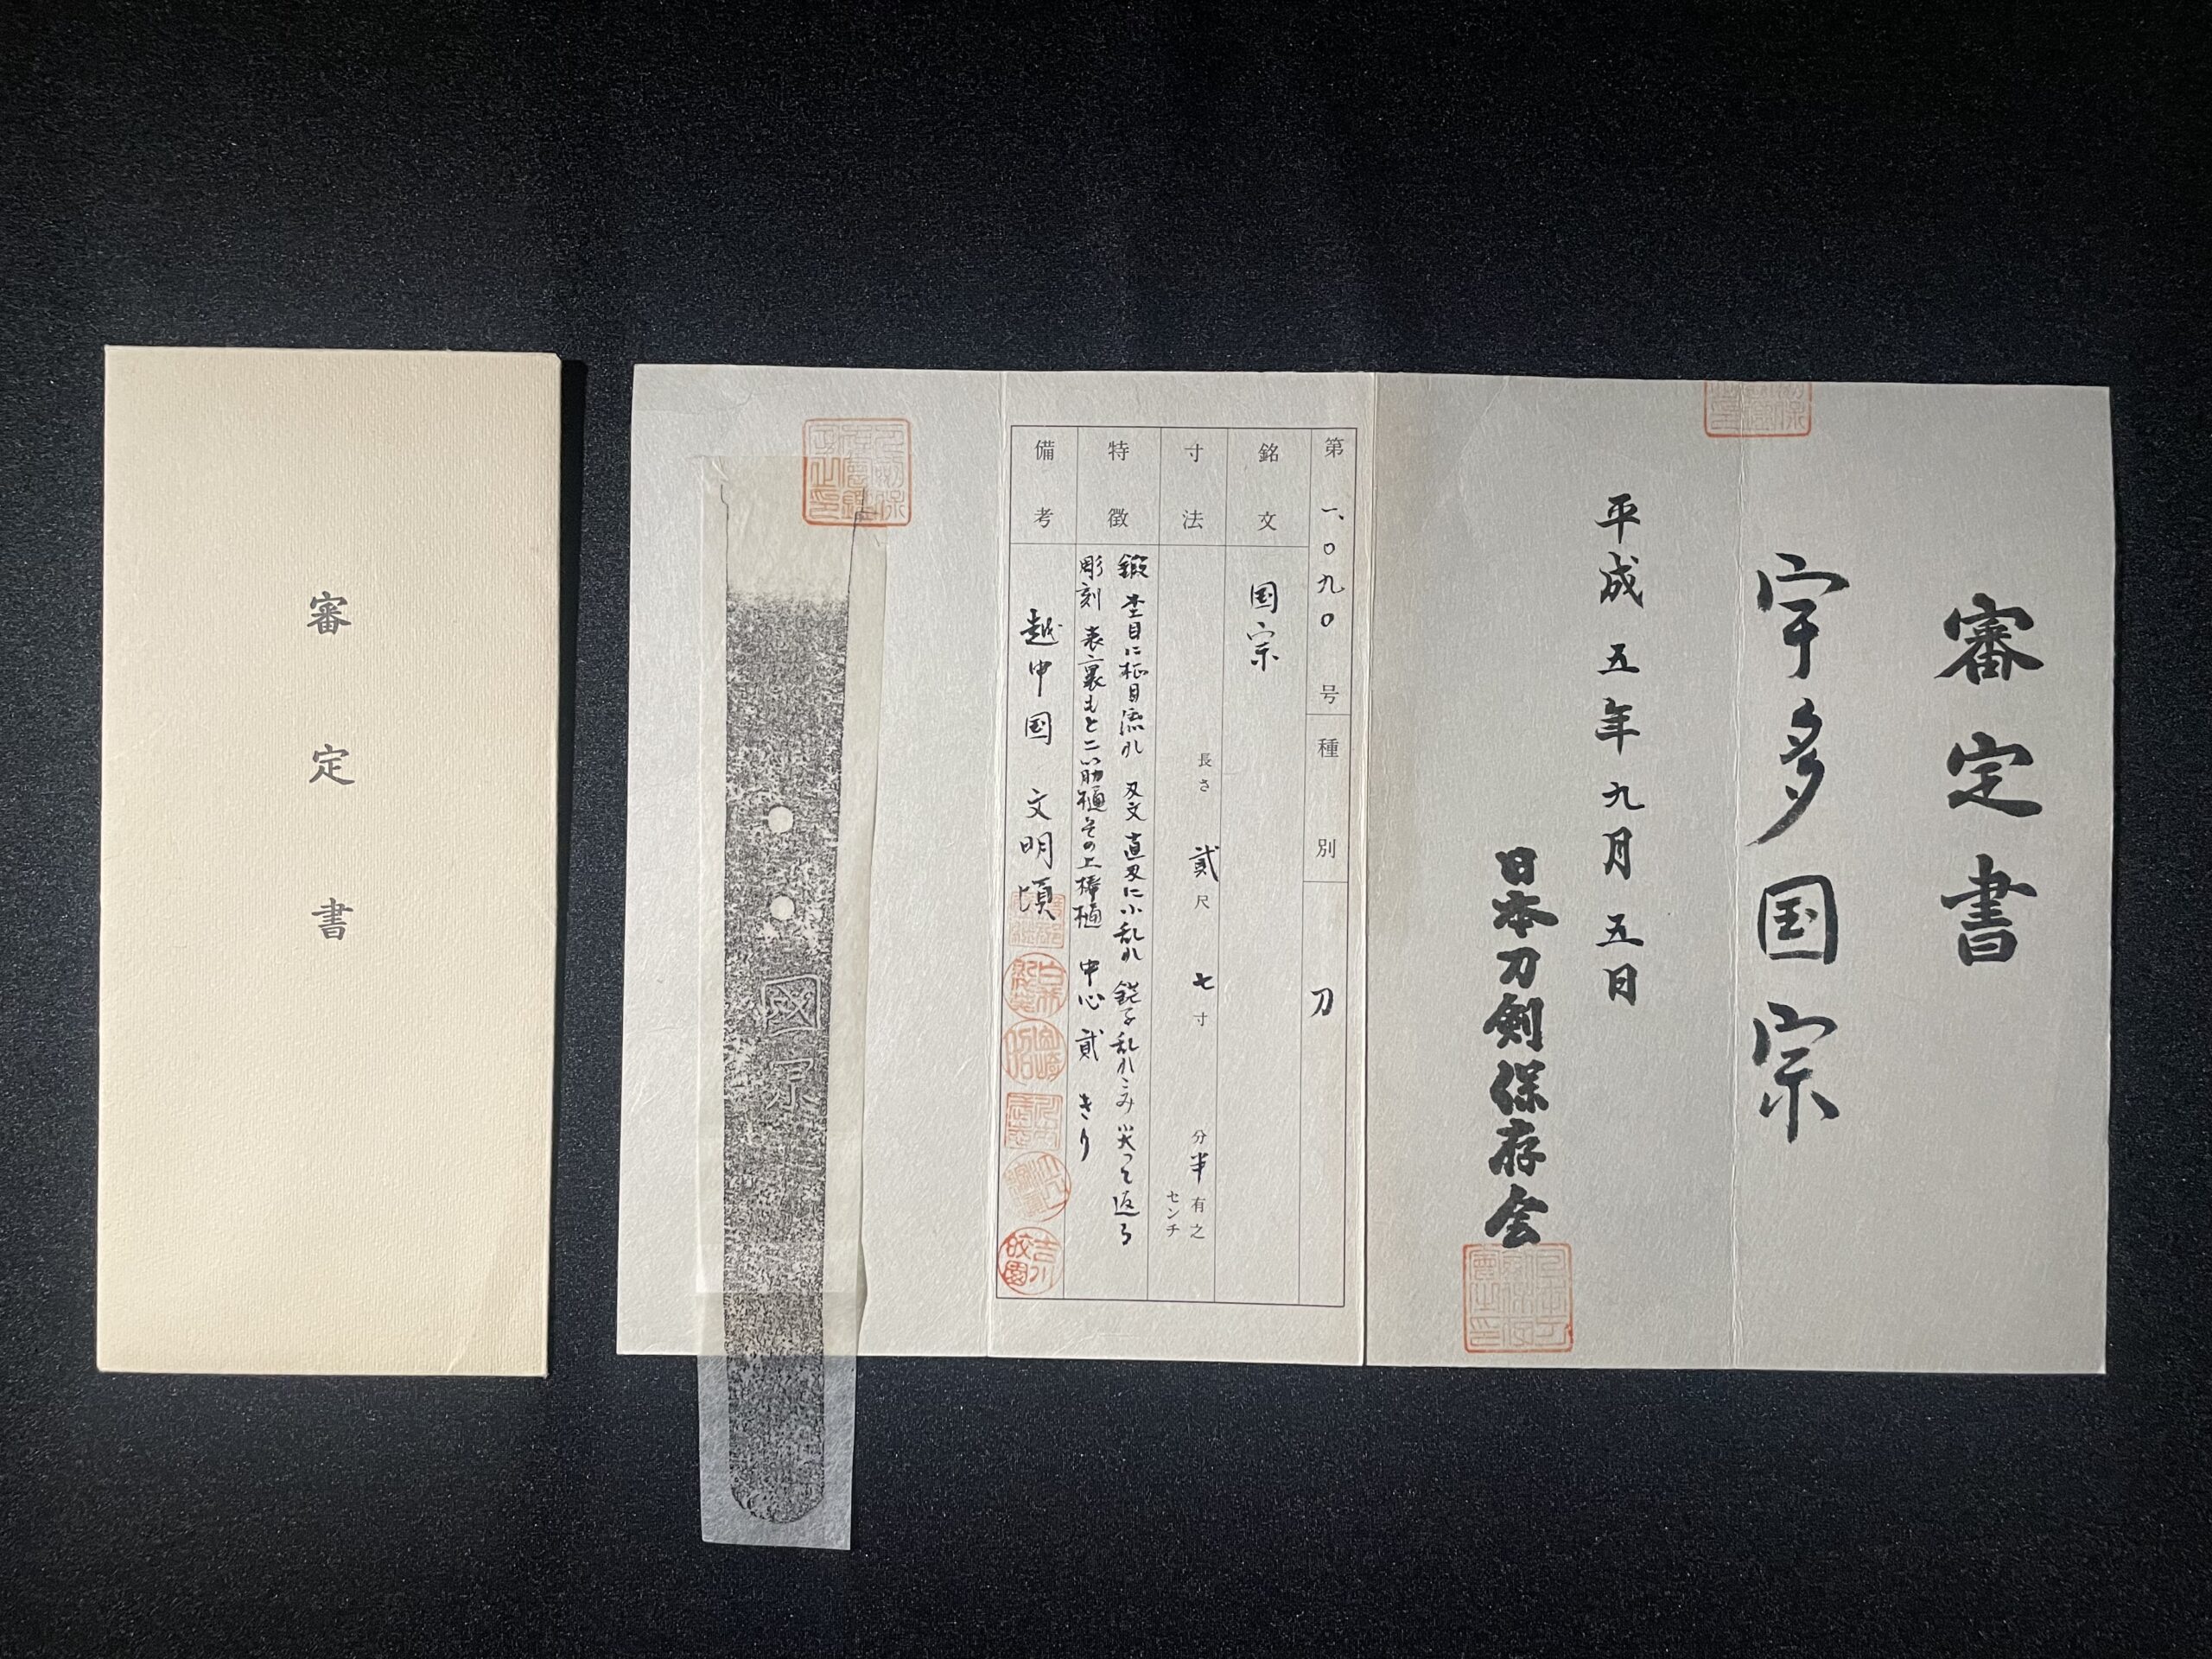 審定書
宇多国宗
平成五年九月五日
日本刀剣保存会
第一、〇九〇号
種別 刀
銘文 国宗
寸法 長さ 貳尺 七寸 分半 有之
センチ
特徴 鍛 杢目に柾目流れ 刃文 直刃に小乱れ 鋩子乱れこみ 尖って返る
彫刻 表裏もと二筋樋その上棒樋 中心 貳 きり
備考 越中国 文明頃
吉川
皎園
國宗
審定書